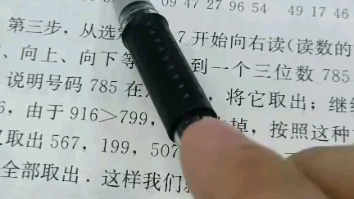 09 47 27 96 54 49 17 46
第三步，从选 7 开始向右读(读数的
、向上、向下等 到一个三位数 785
说明号码 785 在 ，将它取出；继续
6，由于 916＞799， 掉，按照这种
取出 567，199，507
全部取出．这样我们